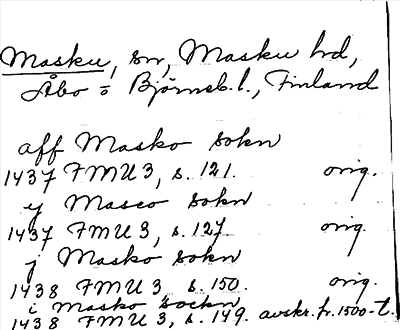 Masku, sn, Masku hd,
Åbo o Björneb. l., Finland
aff Masko sokn
1437 FMU 3, s. 121. orig.
ij Masco sokn
1437 FMU 3, s. 127. orig.
j Masko sokn
1438 FMU 3, s. 150. orig.
i Masko sockn
1438 FMU 3, s. 149. avskr. fr. 1500-t.